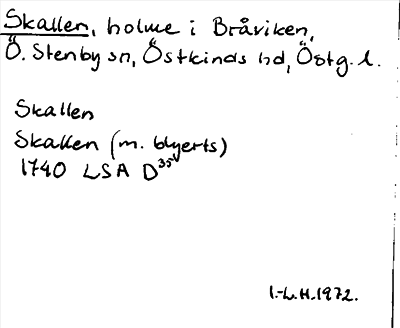 Skallen, holme i Bråviken,
Ö. Stenby sn, Östkinds hd, Östg. l.
Skallen
Skallen (m. blyerts)
1740 LSA D35
I.-L.H. 1972.